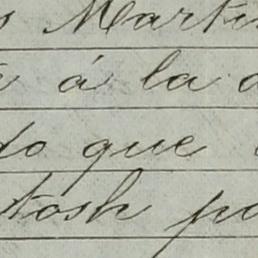 Marti
á la
do que
tosh po